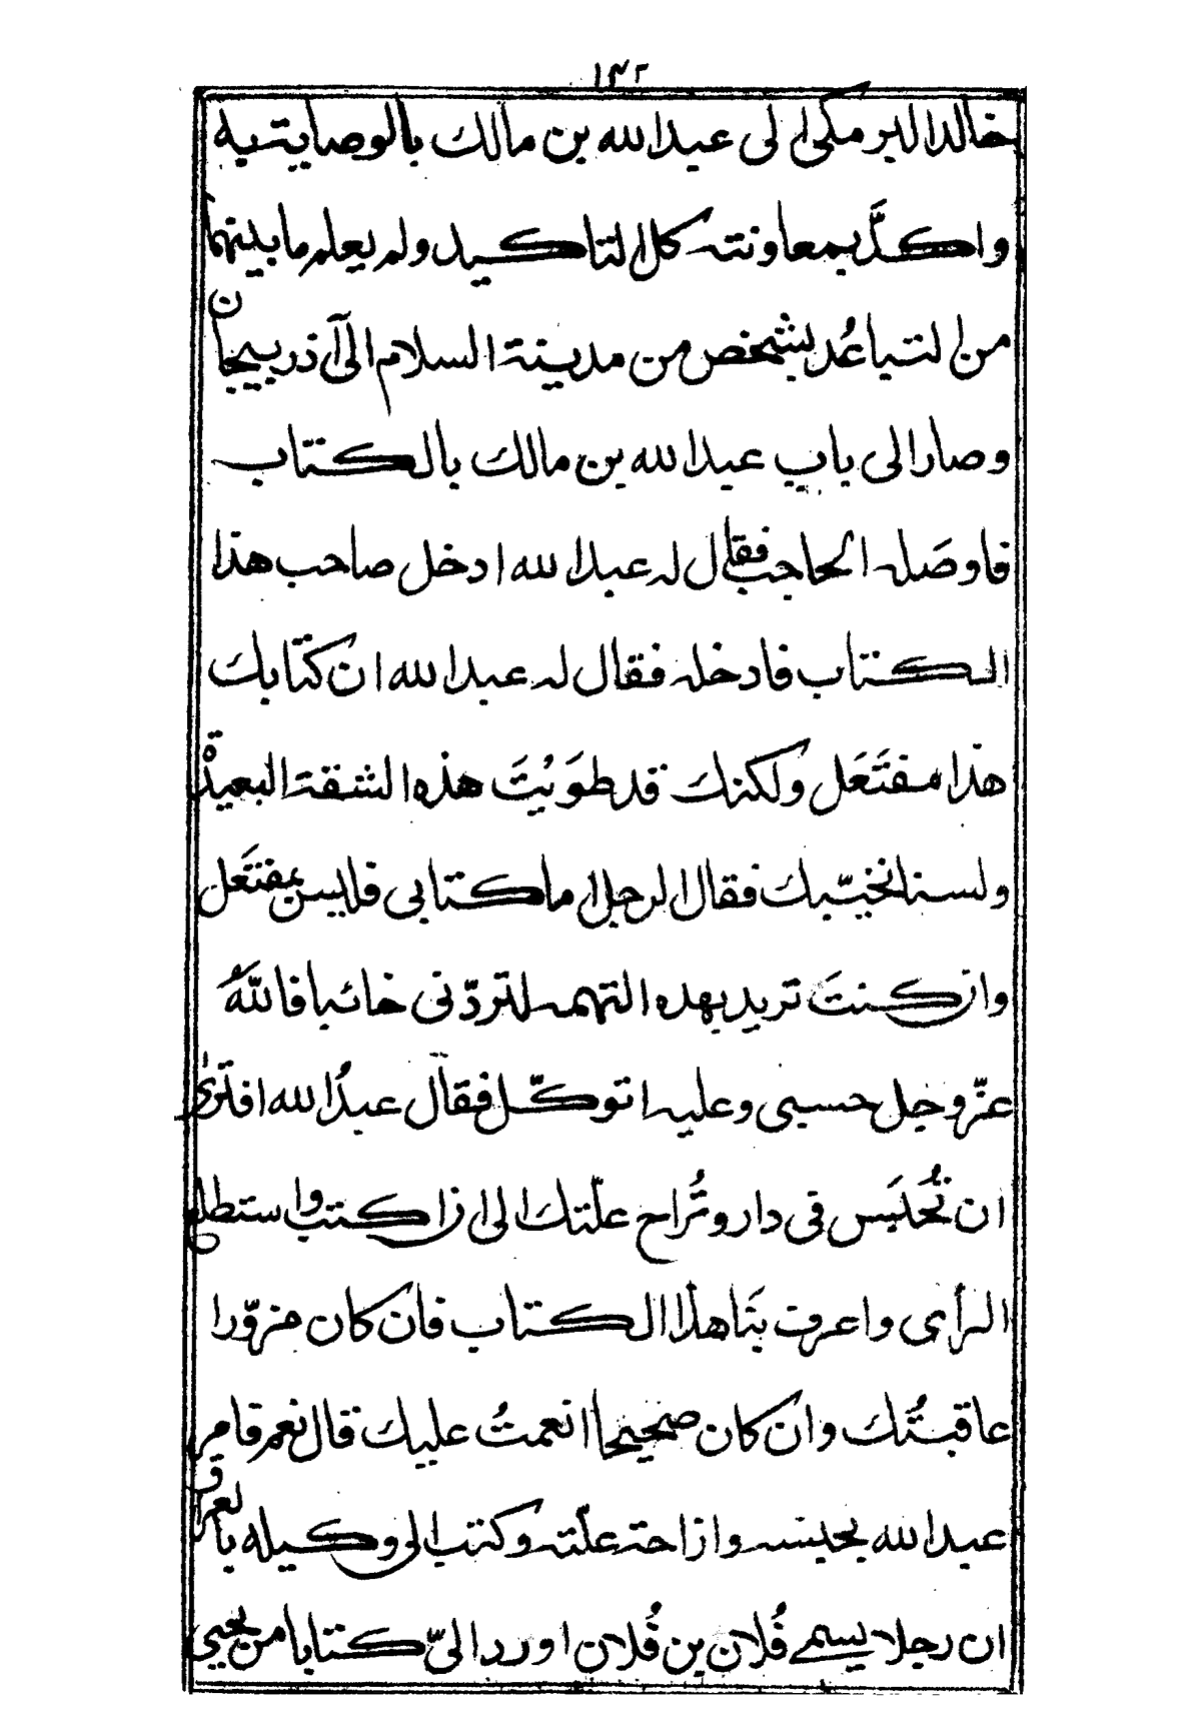 ١٣٢
خالد البرمكي الى عبد الله بن مالك بالوصاية به
واكدَّ بمعاونته كل التاكيد ولم يعلم ما بينهما
من التباعُد بشخص من مدينة السلام الى آذربيجان
وصار الى باب عبد الله بن مالك بالكتاب
فاوصَله الحاجب فقال له عبد الله ادخل صاحب هذا
الكتاب فادخله فقال له عبد الله ان كتابك
هذا مفتَعَل ولكنك قد طوَيْتَ هذه الشقة البعيدة
ولسنا نخيّبك فقال الرجل اما كتابي فليس بمفتَعَل
وان كنتَ تريد بهذه التهمه لتردّني خائبا فاللّٰهُ
عزّ وجل حسبي وعليه اتوكّل فقال عبدُ الله افترىٰ
ان تُحبَس في دار وتُزاح علّتك الى ان اكتب واستطلع
الرأى واعرف نبَأ هذا الكتاب فان كان مزوّرا
عاقبتُك وان كان صحيحا انعمتُ عليك قال نعم فامر
عبد الله بحبسه وازاحة علّته وكتب الى وكيله بالعراق
ان رجلا يسمے فُلان بن فُلان اورد الىّ كتابا من يحيى